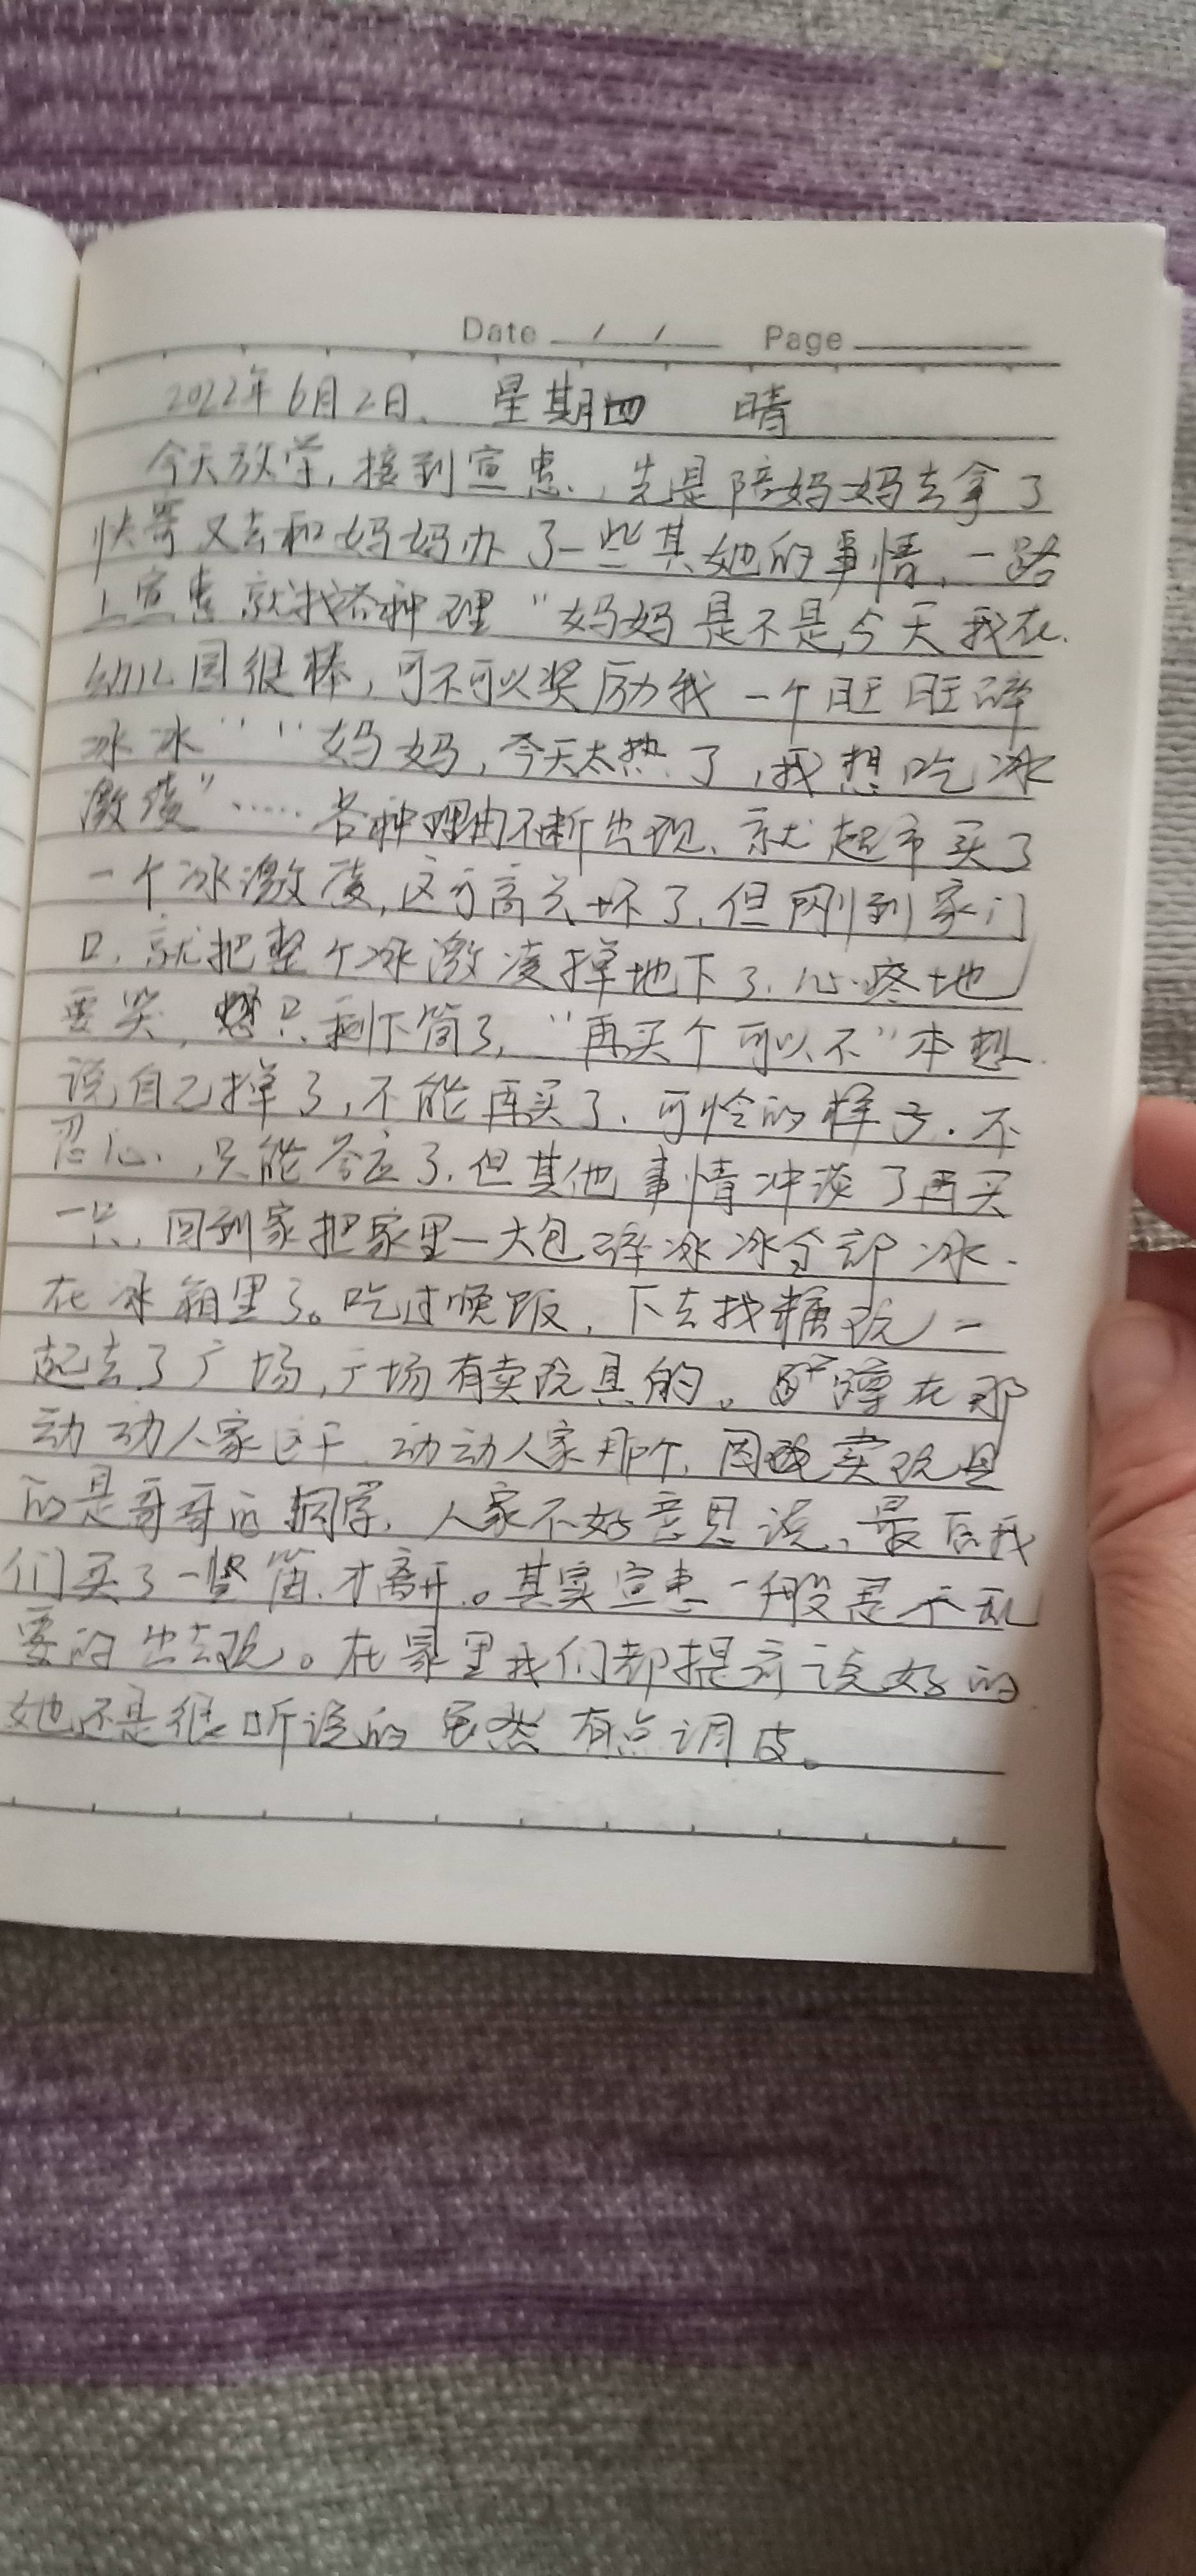 Date / / Page
2022年6月2日、 星期四 晴
今天放学,接到宣惠,先是陪妈妈去拿了
快寄又去和妈妈办了一些其她的事情,一路
上宣惠就找各种理“妈妈是不是,今天我在
幼儿园很棒,可不可以奖励我一个旺旺碎
冰冰”“妈妈,今天太热了,我想吃冰
激凌”……各种理由不断出现、就超市买了
一个冰激凌,这可高兴坏了,但刚到家门
口,就把整个冰激凌掉地下了,心疼地
要哭,只剩下筒了,“再买个可以不”本想
说自己掉了,不能再买了,可怜的样子,不
忍心,只能答应了,但其他事情冲淡了再买
一只,回到家把家里一大包碎冰冰全部冰
在冰箱里了。吃过晚饭,下去找糖玩一
起去了广场,广场有卖玩具的。蹲在那
动动人家这个,动动人家那个,因卖玩具
的是哥哥的同学,人家不好意思说,最后我
们买了一竖笛,才离开。其实宣惠一般是不乱
要的出去玩。在家里我们都提前说好的
她还是很听话的虽然有点调皮。